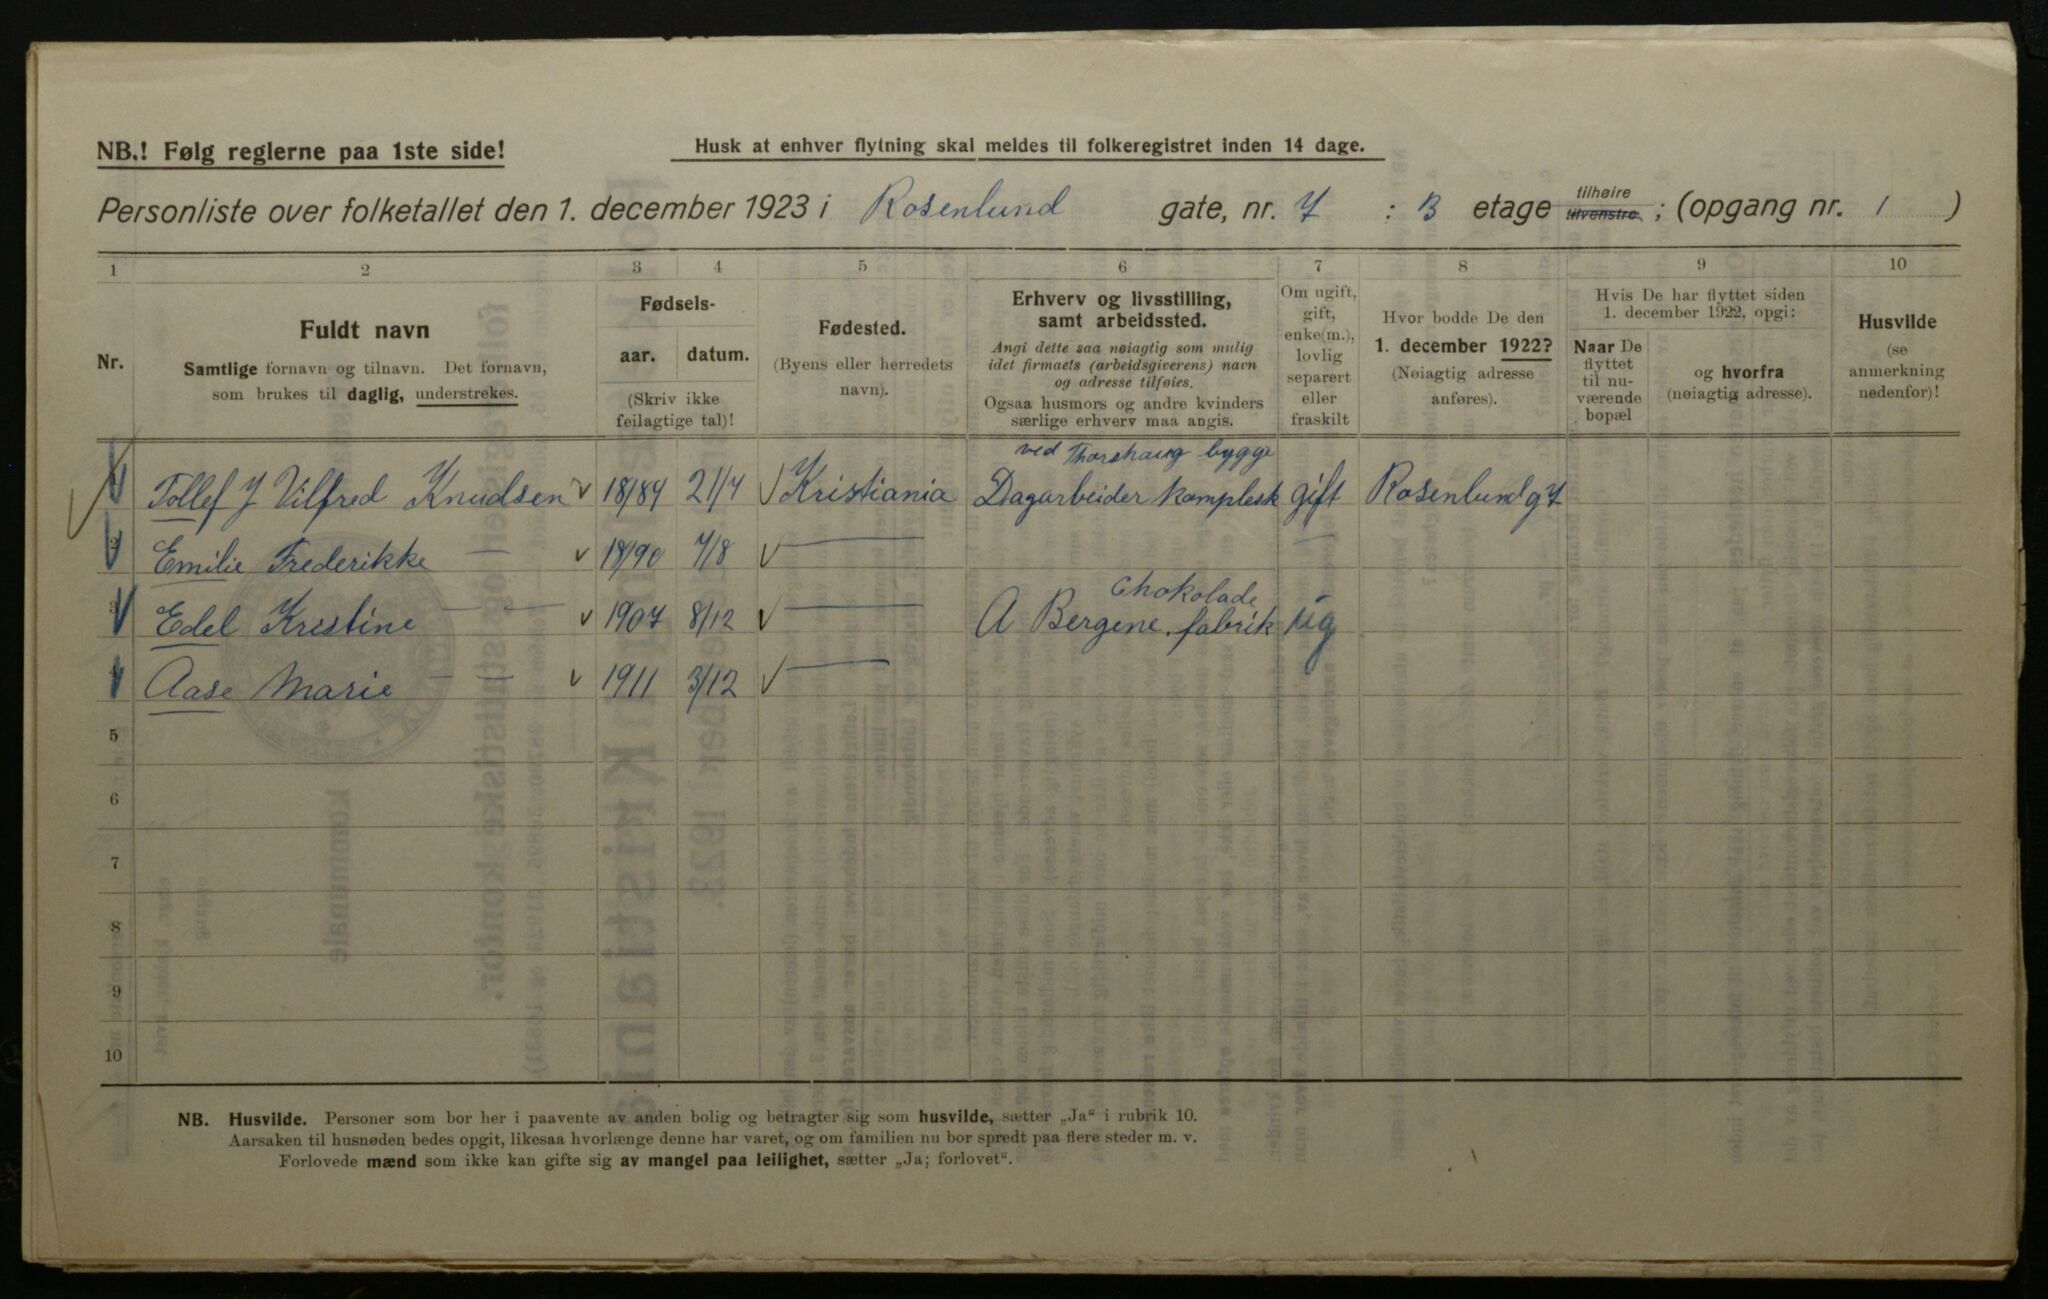 NB.! Følg reglerne paa 1ste side!
Husk at enhver flytning skal meldes til folkeregistret inden 14 dage.
Personliste over folketallet den 1. december 1923 i Rosenlund gate, nr. 7 : B etage tilhøire tilvenstre ; (opgang nr. 1)
1 2 3 4 5 6 7 8 9 10
Nr.
Fuldt navn
Samtlige fornavn og tilnavn. Det fornavn,
som brukes til daglig, understrekes.
Fødsels-
aar. datum.
(Skriv ikke
feilagtige tal)!
Fødested.
(Byens eller herredets
navn).
Erhverv og livsstilling,
samt arbeidssted.
Angi dette saa nøiagtig som mulig
idet firmaets (arbeidsgiverens) navn
og adresse tilføies.
Ogsaa husmors og andre kvinders
særlige erhverv maa angis.
Om ugift,
gift,
enke(m.),
lovlig
separert
eller
fraskilt
Hvor bodde De den
1. december 1922?
(Nøiagtig adresse
anføres).
Hvis De har flyttet siden
1. december 1922, opgi:
Naar De
flyttet
til nu-
værende
bopæl
og hvorfra
(nøiagtig adresse).
Husvilde
(se
anmerkning
nedenfor)!
ved Thorshaug bygge
1 Tollef J Vilfred Knudsen 18/84 21/7 Kristiania Dagarbeider Komplesk gift Rosenlundg 7
2 Emilie Frederikke — 18/90 7/8 — —
Chokolade
3 Edel Kristine — — 1907 8/12 — A Bergene. fabrik ug
4 Aase Marie — — 1911 3/12 —
5
6
7
8
9
10
NB. Husvilde. Personer som bor her i paavente av anden bolig og betragter sig som husvilde, sætter „Ja“ i rubrik 10.
Aarsaken til husnøden bedes opgit, likesaa hvorlænge denne har varet, og om familien nu bor spredt paa flere steder m. v.
Forlovede mænd som ikke kan gifte sig av mangel paa leilighet, sætter „Ja; forlovet“.